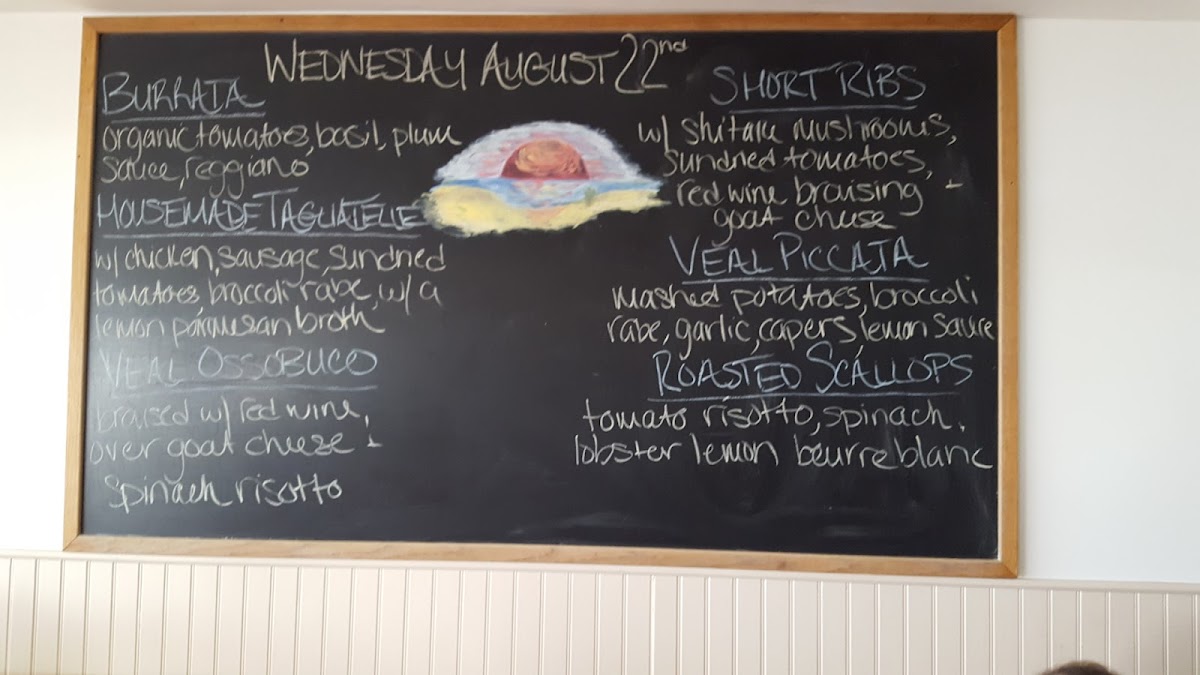 WEDNESDAY AUGUST 22nd
BURRATA
organic tomatoes, basil, plum
sauce, reggiano
HOUSEMADE TAGLIATELLE
w/ chicken, sausage, sundried
tomatoes, broccoli rabe, w/ a
lemon parmesan broth
VEAL OSSOBUCO
braised w/ red wine,
over goat cheese +
spinach risotto
SHORT RIBS
w/ shitake mushrooms,
sundried tomatoes,
red wine braising +
goat cheese
VEAL PICCATA
mashed potatoes, broccoli
rabe, garlic, capers, lemon sauce
ROASTED SCALLOPS
tomato risotto, spinach,
lobster lemon beurre blanc